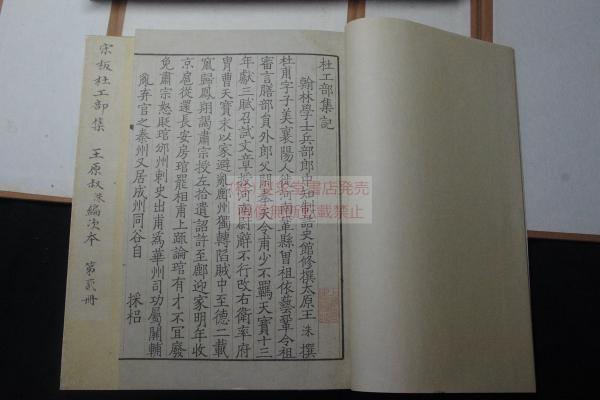 杜工部集記
翰林學士兵部郎中知制誥史館修撰太原王洙撰
杜甫字子美襄陽人徙河南鞏縣曾祖依藝鞏令祖
審言膳部員外郎父閑奉天令甫少不羈天寶十三
年獻三賦召試文章授河南尉辭不行改右衛率府
冑曹天寶末以家避亂鄜州獨轉陷賊中至德二載
竄歸鳳翔謁肅宗授左拾遺詔許至鄜迎家明年收
京扈從還長安房琯罷相甫上疏論琯有才不宜廢
免肅宗怒貶琯邠州刺史出甫為華州司功屬關輔
亂弃官之秦州又居成州同谷自
採梠
宋板杜工部集 王原叔洙編次本 第貳冊
画像無断転載禁止